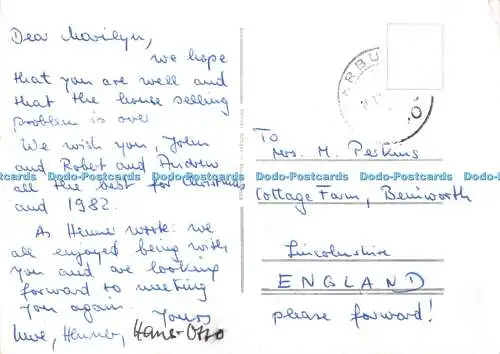 Dear Marilyn,
we hope
that you are well and
that the house selling
problem is over
We wish you, John
and Robert and Andrew
all the best for Christmas
and 1982.
As Henner wrote: we
all enjoyed being with
you and we are looking
forward to meeting
you again.
Yours
Uwe, Henner, Hans-Otto
ARBU
To
Mrs. M. Perkins
Cottage Farm, Benniworth
Lincolnshire
ENGLAND
please forward!
Dodo-Postcards Dodo-Postcards Dodo-Postcards
Dodo-Postcards Dodo-Postcards Dodo-Postcards